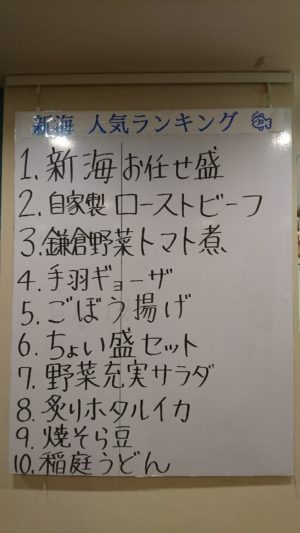 新海 人気ランキング
1.新海お任せ盛
2.自家製ローストビーフ
3.鎌倉野菜トマト煮
4.手羽ギョーザ
5.ごぼう揚げ
6.ちょい盛セット
7.野菜充実サラダ
8.炙りホタルイカ
9.焼そら豆
10.稲庭うどん